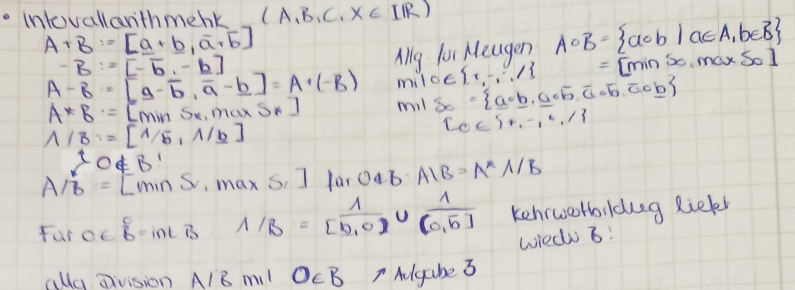 • Intervallarithmetik (A, B, C, X ⊂ IR)
A + B := [a̲ + b̲, a̅ + b̅]
-B := [-b̅, -b̲]
A - B := [a̲ - b̅, a̅ - b̲] = A + (-B)
A * B := [min S*, max S*]
1/B := [1/b̅, 1/b̲]
0 ∉ B!
A/B := [min S/, max S/] für 0∉B A\B = A * 1/B
Allg für Mengen A∘B = {a∘b | a∈A, b∈B}
mit ∘∈{+,-,*,/} = [min S∘, max S∘]
mit S∘ = {a̲∘b̲, a̲∘b̅, a̅∘b̅, a̅∘b̲}
∘∈{+,-,*,/}
Für 0 ∈ B̊ = int B 1/B = 1/[b̲,0) ∪ 1/(0,b̅] Kehrwertbildung liefert
wieder B!
allg Division A/B mit 0∈B ↗ Aufgabe 3